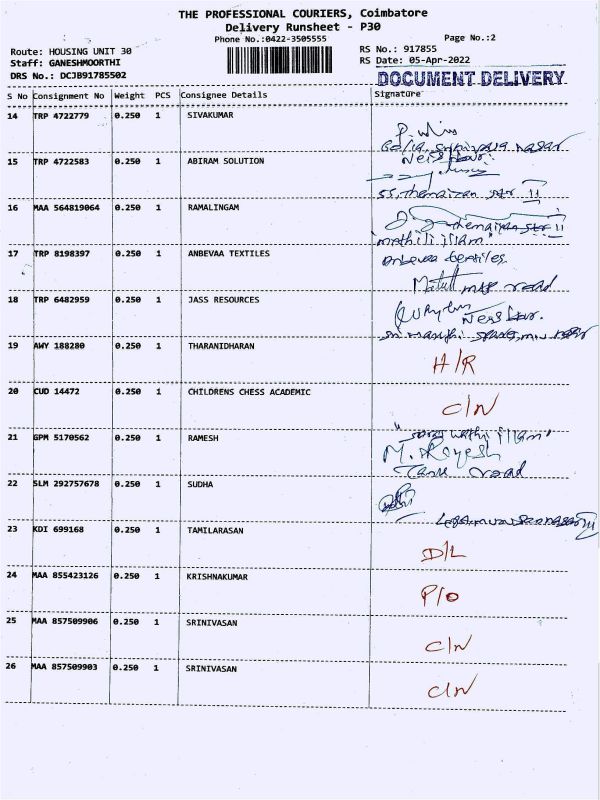 THE PROFESSIONAL COURIERS, Coimbatore
Delivery Runsheet - P30
Phone No.:0422-3505555
Page No.:2
Route: HOUSING UNIT 30
RS No.: 917855
Staff: GANESHMOORTHI
RS Date: 05-Apr-2022
DRS No.: DCJB91785502
DOCUMENT DELIVERY
S No Consignment No Weight PCS Consignee Details Signature
14 TRP 4722779 0.250 1 SIVAKUMAR
15 TRP 4722583 0.250 1 ABIRAM SOLUTION
16 MAA 564819064 0.250 1 RAMALINGAM
17 TRP 8198397 0.250 1 ANBEVAA TEXTILES
18 TRP 6482959 0.250 1 JASS RESOURCES
19 AWY 188280 0.250 1 THARANIDHARAN H/R
20 CUD 14472 0.250 1 CHILDRENS CHESS ACADEMIC C/N
21 GPM 5170562 0.250 1 RAMESH
road
22 SLM 292757678 0.250 1 SUDHA
23 KDI 699168 0.250 1 TAMILARASAN D/L
24 MAA 855423126 0.250 1 KRISHNAKUMAR P/O
25 MAA 857509906 0.250 1 SRINIVASAN C/N
26 MAA 857509903 0.250 1 SRINIVASAN C/N